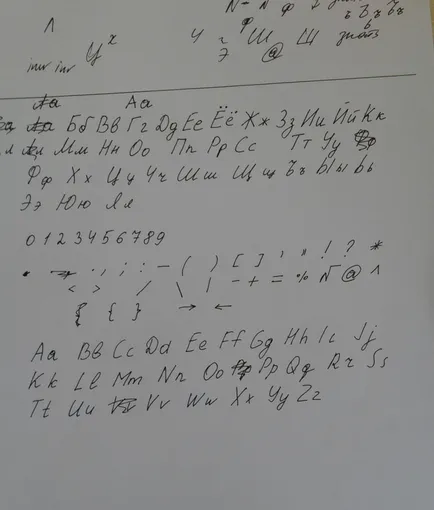 Л
inv inv y x
ч Э Ш @ Щ знать
Аа
Бб Вв Гг Дд Ее Ёё Жж Зз Ии Йй Кк
Мм Нн Оо Пп Рр Сс Тт Уу
Фф Хх Цц Чч Шш Щщ Ъъ Ыы Ьь
Ээ Юю Яя
0 1 2 3 4 5 6 7 8 9
. , ; : – ( ) [ ] ' " ! ? *
< > / \ | - + = % № @ ^
{ { } → ←
Aa Bb Cc Dd Ee Ff Gg Hh Ii Jj
Kk Ll Mm Nn Oo Pp Qq Rr Ss
Tt Uu Vv Ww Xx Yy Zz